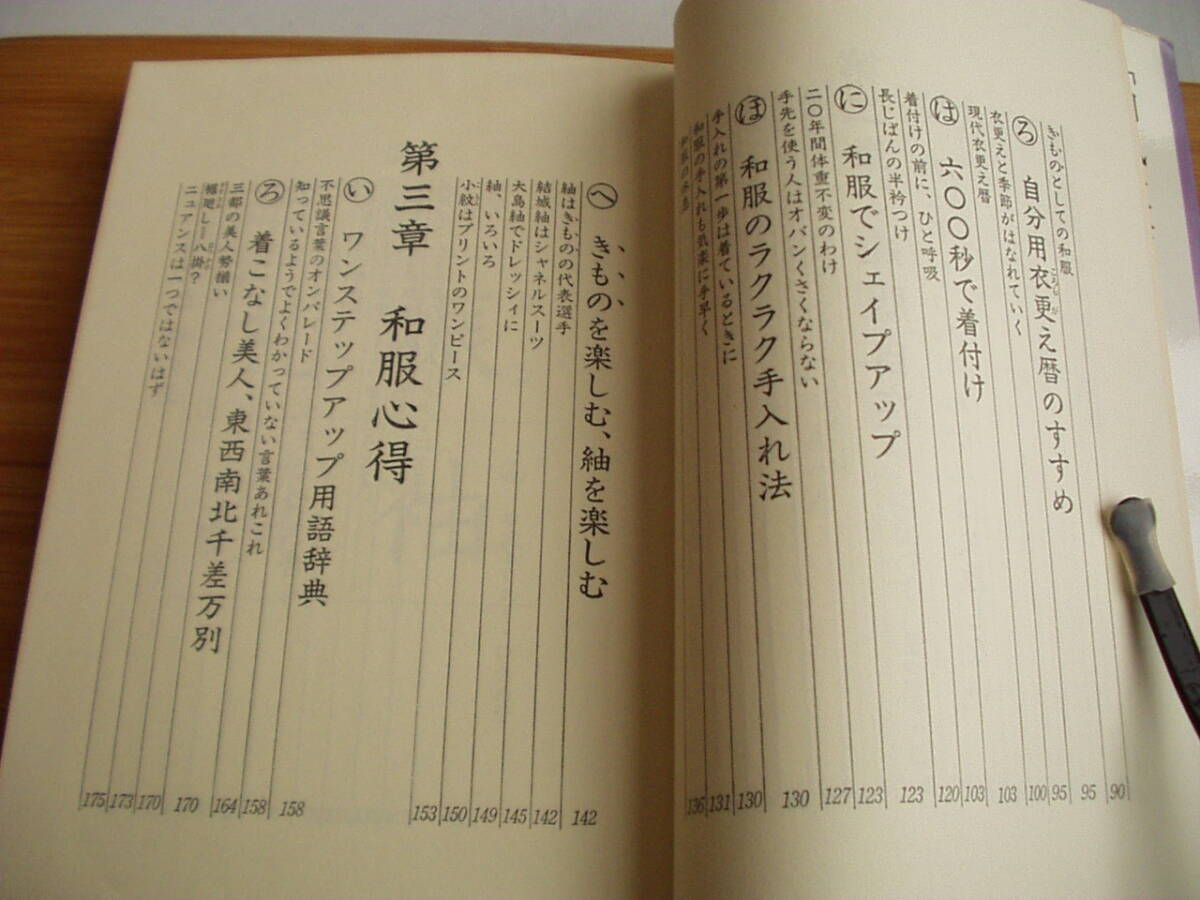 きものとしての和服 90
ろ 自分用衣更え暦のすすめ 95
衣更えと季節がはなれていく 95
現代衣更え暦 100
は 六〇〇秒で着付け 103
着付けの前に、ひと呼吸 103
長じばんの半衿つけ 120
に 和服でシェイプアップ 123
二〇年間体重不変のわけ 123
手先を使う人はオバンくさくならない 127
ほ 和服のラクラク手入れ法 130
手入れの第一歩は着ているときに 130
和服の手入れも気楽に手早く 131
136
へ きものを楽しむ、紬を楽しむ 142
紬はきものの代表選手 142
結城紬はシャネルスーツ 145
大島紬でドレッシィに 149
紬、いろいろ 150
小紋はプリントのワンピース 153
第三章 和服心得
い ワンステップアップ用語辞典 158
不思議言葉のオンパレード 158
知っているようでよくわかっていない言葉あれこれ 164
ろ 着こなし美人、東西南北千差万別 170
三都の美人勢揃い 170
裾廻し=八掛? 173
ニュアンスは一つではないはず 175